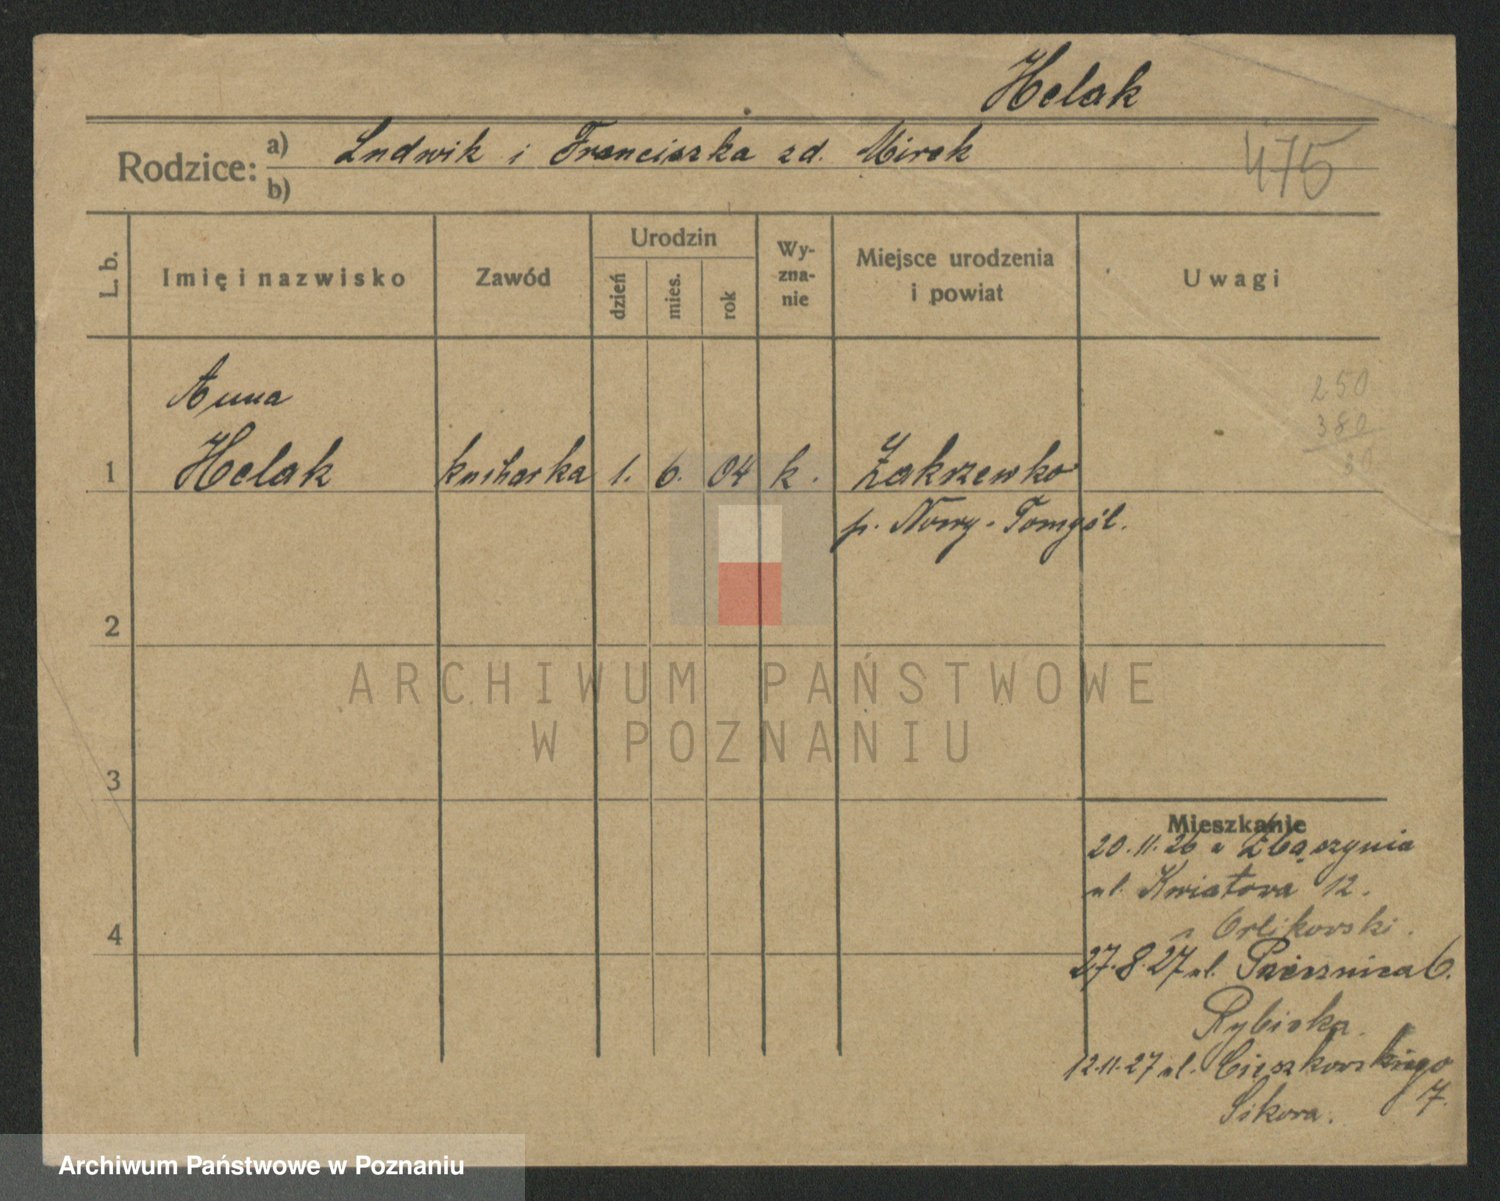 Helak
475
Rodzice: a) Ludwik i Franciszka zd. Mirek
b)
L. b. Imię i nazwisko Zawód Urodzin dzień mies. rok Wy-zna-nie Miejsce urodzenia i powiat Uwagi
250
380
Anna
1 Helak kucharka 1. 6. 04 k. Zakrzewko
p. Nowy-Tomyśl.
2
ARCHIWUM PAŃSTWOWE
W POZNANIU
3
Mieszkanie
20.11.26 z Zbąszynia
ul. Kwiatowa 12.
Orlikowski.
4
27.8.27 ul. 6.
Rybicka.
12.11.27 ul. Cieszkowskiego
7.
Sikora.
Archiwum Państwowe w Poznaniu